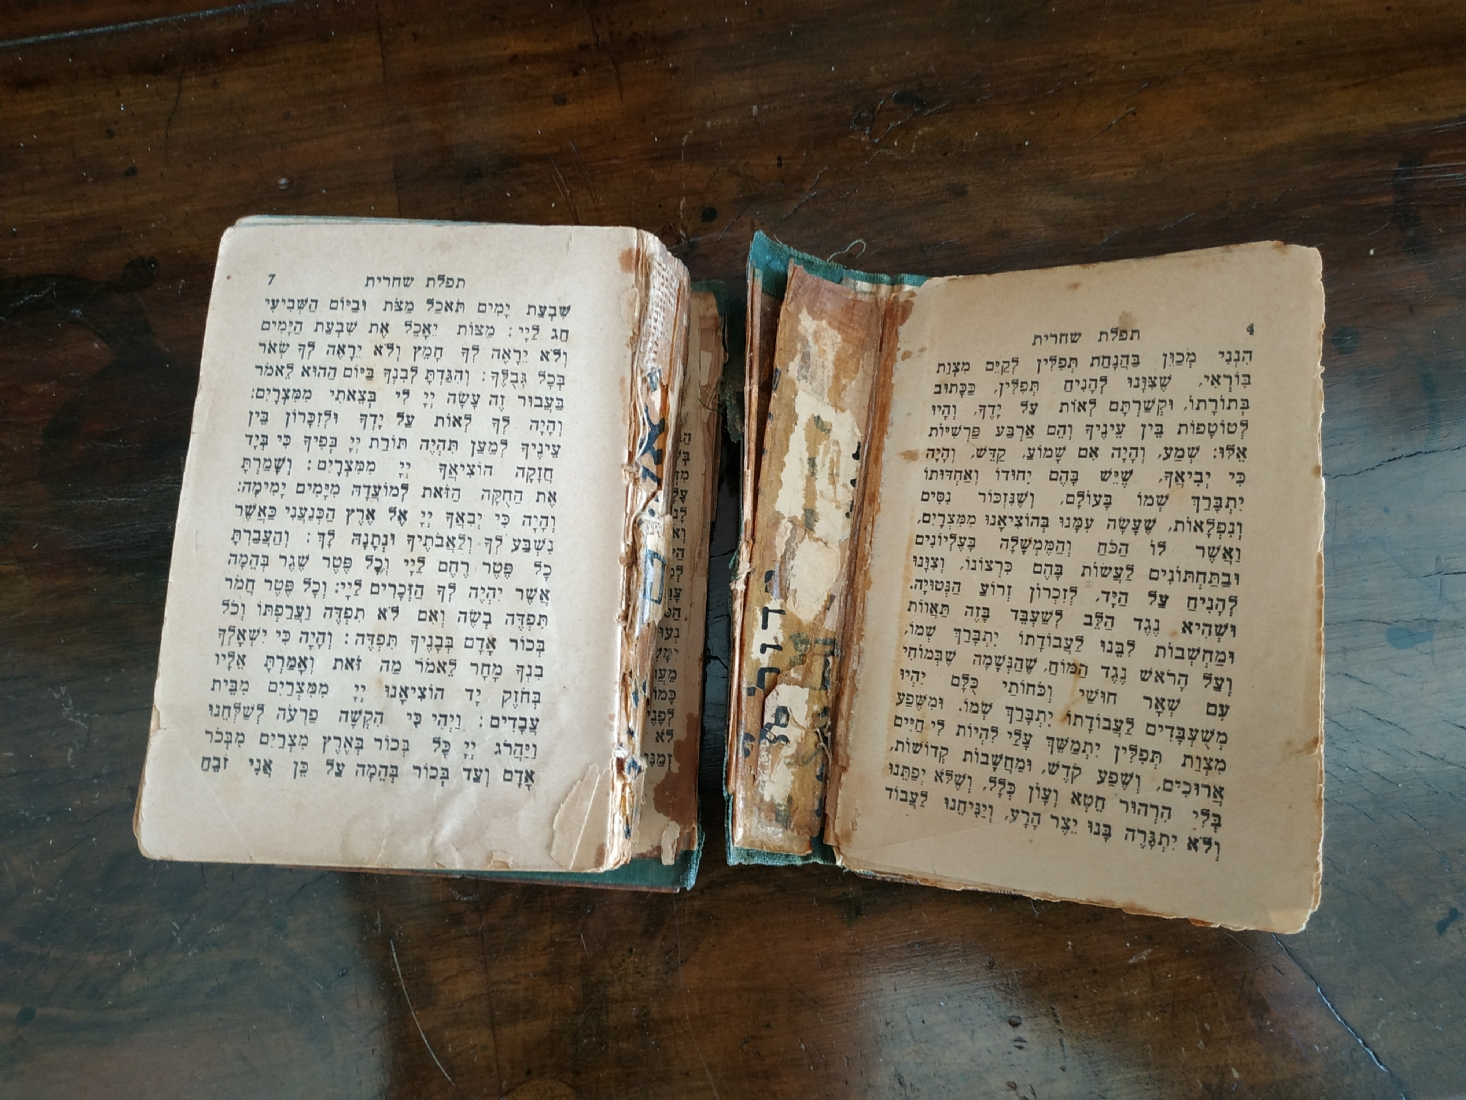 4 תפלת שחרית
הִנְנִי מְכַוֵּן בַּהֲנָחַת תְּפִלִּין לְקַיֵּם מִצְוַת
בּוֹרְאִי, שֶׁצִּוָּנוּ לְהָנִיחַ תְּפִלִּין, כַּכָּתוּב
בְּתוֹרָתוֹ, וּקְשַׁרְתָּם לְאוֹת עַל יָדֶךָ, וְהָיוּ
לְטוֹטָפוֹת בֵּין עֵינֶיךָ וְהֵם אַרְבַּע פַּרְשִׁיּוֹת
אֵלּוּ: שְׁמַע, וְהָיָה אִם שָׁמוֹעַ, קַדֶּשׁ, וְהָיָה
כִּי יְבִיאֲךָ, שֶׁיֵּשׁ בָּהֶם יִחוּדוֹ וְאַחְדוּתוֹ
יִתְבָּרַךְ שְׁמוֹ בָּעוֹלָם, וְשֶׁנִּזְכּוֹר נִסִּים
וְנִפְלָאוֹת, שֶׁעָשָׂה עִמָּנוּ בְּהוֹצִיאָנוּ מִמִּצְרָיִם,
וַאֲשֶׁר לוֹ הַכֹּחַ וְהַמֶּמְשָׁלָה בָּעֶלְיוֹנִים
וּבַתַּחְתּוֹנִים לַעֲשׂוֹת בָּהֶם כִּרְצוֹנוֹ, וְצִוָּנוּ
לְהָנִיחַ עַל הַיָּד, לְזִכְרוֹן זְרוֹעַ הַנְּטוּיָה.
וְשֶׁהִיא נֶגֶד הַלֵּב לְשַׁעְבֵּד בָּזֶה תַּאֲווֹת
וּמַחְשְׁבוֹת לִבֵּנוּ לַעֲבוֹדָתוֹ יִתְבָּרַךְ שְׁמוֹ,
וְעַל הָרֹאשׁ נֶגֶד הַמּוֹחַ, שֶׁהַנְּשָׁמָה שֶׁבְּמוֹחִי
עִם שְׁאָר חוּשַׁי וְכֹחוֹתַי כֻּלָּם יִהְיוּ
מְשֻׁעְבָּדִים לַעֲבוֹדָתוֹ יִתְבָּרַךְ שְׁמוֹ. וּמִשֶּׁפַע
מִצְוַת תְּפִלִּין יִתְמַשֵּׁךְ עָלַי לִהְיוֹת לִי חַיִּים
אֲרוּכִים, וְשֶׁפַע קֹדֶשׁ, וּמַחֲשָׁבוֹת קְדוֹשׁוֹת,
בְּלִי הִרְהוּר חֵטְא וְעָוֹן כְּלָל, וְשֶׁלֹּא יְפַתֵּנוּ
וְלֹא יִתְגָּרֶה בָּנוּ יֵצֶר הָרָע, וְיַנִּיחֵנוּ לַעֲבוֹד
תפלת שחרית 7
שִׁבְעַת יָמִים תֹּאכַל מַצֹּת וּבַיּוֹם הַשְּׁבִיעִי
חַג לַייָ: מַצּוֹת יֵאָכֵל אֵת שִׁבְעַת הַיָּמִים
וְלֹא יֵרָאֶה לְךָ חָמֵץ וְלֹא יֵרָאֶה לְךָ שְׂאֹר
בְּכָל גְּבֻלֶךָ: וְהִגַּדְתָּ לְבִנְךָ בַּיּוֹם הַהוּא לֵאמֹר
בַּעֲבוּר זֶה עָשָׂה יְיָ לִי בְּצֵאתִי מִמִּצְרָיִם:
וְהָיָה לְךָ לְאוֹת עַל יָדְךָ וּלְזִכָּרוֹן בֵּין
עֵינֶיךָ לְמַעַן תִּהְיֶה תּוֹרַת יְיָ בְּפִיךָ כִּי בְּיָד
חֲזָקָה הוֹצִיאֲךָ יְיָ מִמִּצְרָיִם: וְשָׁמַרְתָּ
אֶת הַחֻקָּה הַזֹּאת לְמוֹעֲדָהּ מִיָּמִים יָמִימָה:
וְהָיָה כִּי יְבִאֲךָ יְיָ אֶל אֶרֶץ הַכְּנַעֲנִי כַּאֲשֶׁר
נִשְׁבַּע לְךָ וְלַאֲבֹתֶיךָ וּנְתָנָהּ לָךְ: וְהַעֲבַרְתָּ
כָל פֶּטֶר רֶחֶם לַייָ וְכָל פֶּטֶר שֶׁגֶר בְּהֵמָה
אֲשֶׁר יִהְיֶה לְךָ הַזְּכָרִים לַייָ: וְכָל פֶּטֶר חֲמֹר
תִּפְדֶּה בְשֶׂה וְאִם לֹא תִפְדֶּה וַעֲרַפְתּוֹ וְכֹל
בְּכוֹר אָדָם בְּבָנֶיךָ תִּפְדֶּה: וְהָיָה כִּי יִשְׁאָלְךָ
בִנְךָ מָחָר לֵאמֹר מַה זֹּאת וְאָמַרְתָּ אֵלָיו
בְּחֹזֶק יָד הוֹצִיאָנוּ יְיָ מִמִּצְרַיִם מִבֵּית
עֲבָדִים: וַיְהִי כִּי הִקְשָׁה פַרְעֹה לְשַׁלְּחֵנוּ
וַיַּהֲרֹג יְיָ כָּל בְּכוֹר בְּאֶרֶץ מִצְרַיִם מִבְּכֹר
אָדָם וְעַד בְּכוֹר בְּהֵמָה עַל כֵּן אֲנִי זֹבֵחַ